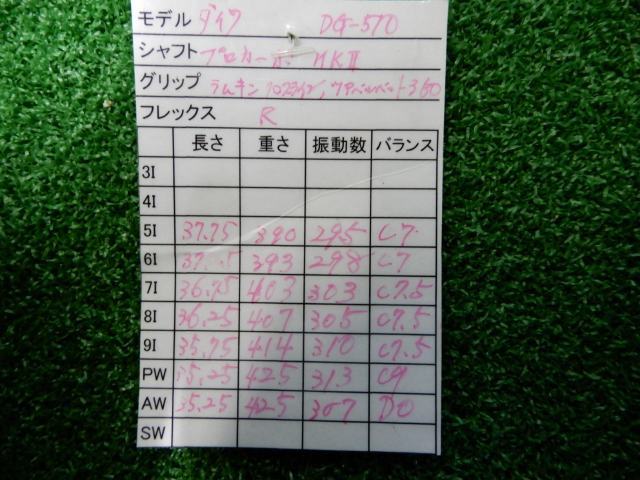 モデル ダイワ DG-570
シャフト プロカーボ MKⅡ
グリップ ラムキン クロスライン, ツアーベルベット360
フレックス R
長さ 重さ 振動数 バランス
3I
4I
5I 37.75 390 295 C7
6I 393 298 C7
7I 36.75 403 303 C7.5
8I 36.25 407 305 C7.5
9I 35.75 414 310 C7.5
PW 35.25 425 313 C9
AW 35.25 425 307 D0
SW